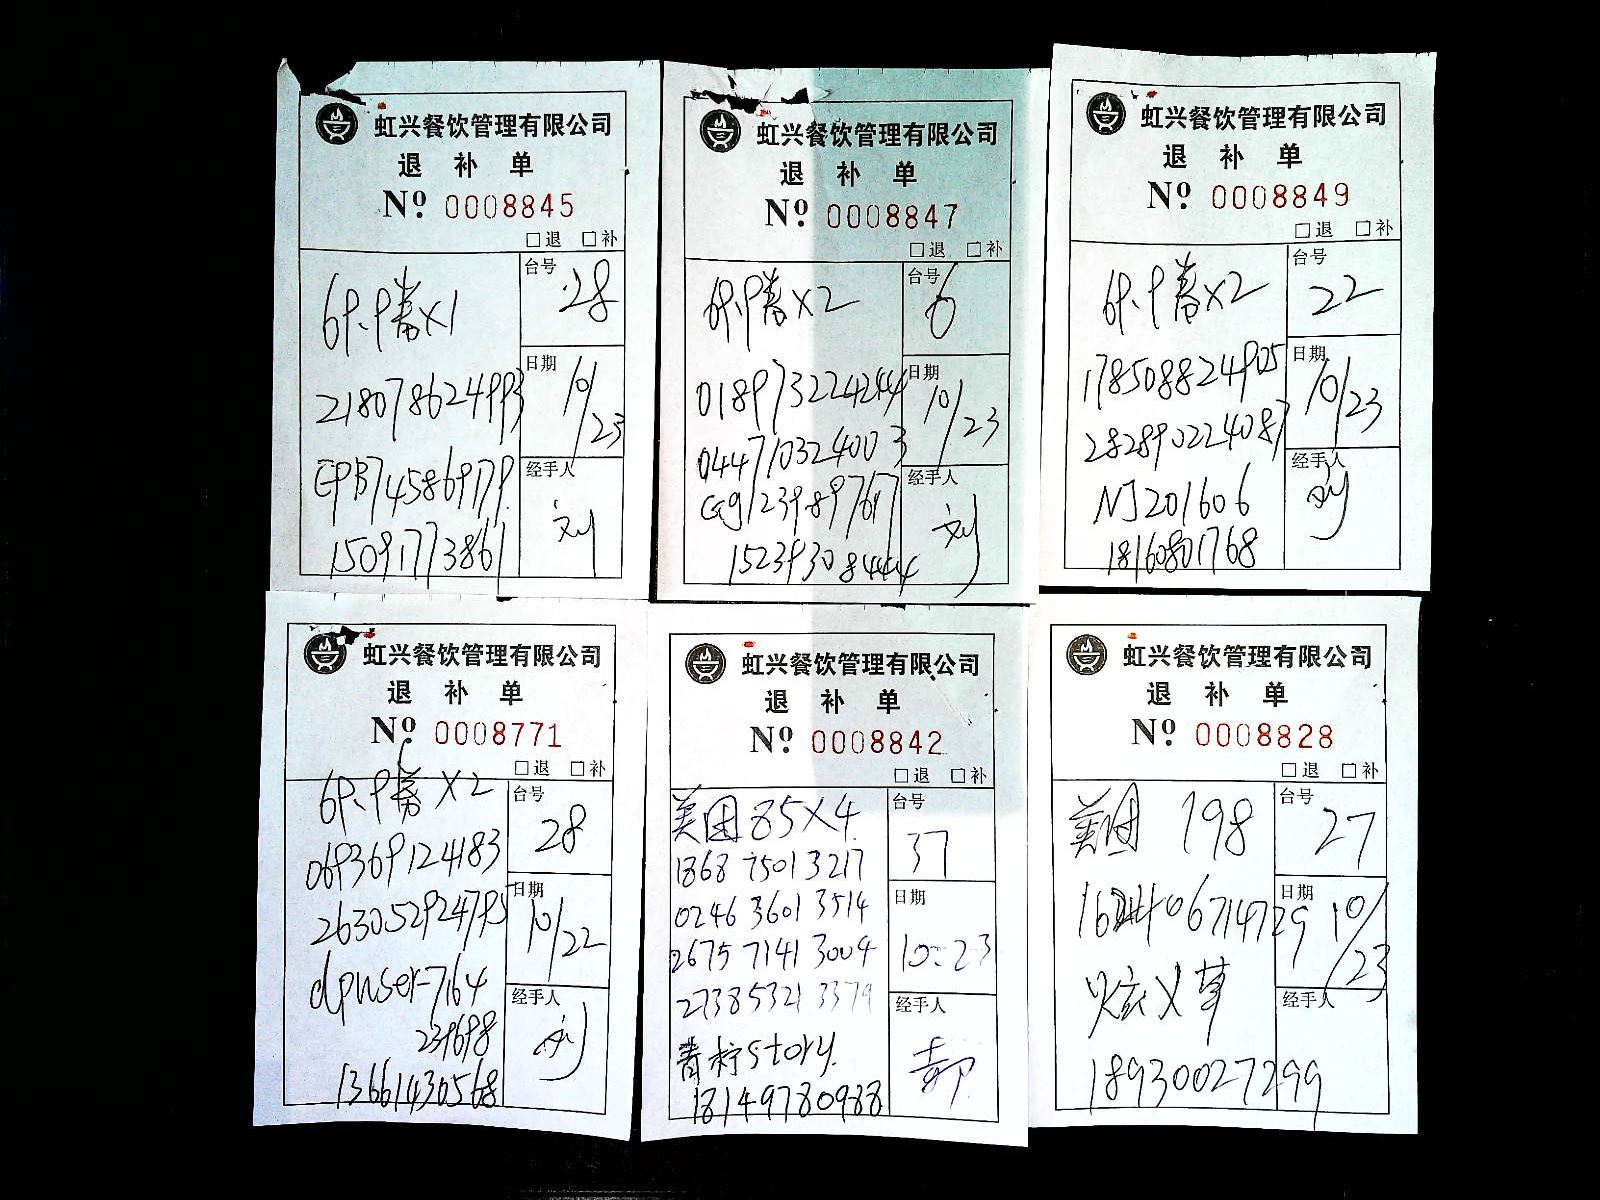 虹兴餐饮管理有限公司
退 补 单
Nº 0008845
□退 □补
台号 28
69.9套×1
日期 10/23
218078624993
经手人 刘
EPB745869179
15091773861
虹兴餐饮管理有限公司
退 补 单
Nº 0008847
□退 □补
台号 6
69.9套×2
日期 10/23
018973224244
044710324003
经手人 刘
15239308444
虹兴餐饮管理有限公司
退 补 单
Nº 0008849
□退 □补
台号 22
69.9套×2
日期 10/23
178508824905
282890224087
经手人 刘
NJ201606
18160801768
虹兴餐饮管理有限公司
退 补 单
Nº 0008771
□退 □补
台号 28
69.9套×2
069369124183
日期 10/22
263052924795
经手人 刘
dpuser-7164
239698
13661430568
虹兴餐饮管理有限公司
退 补 单
Nº 0008842
□退 □补
台号 37
美团 85×4
1868 7501 3217
日期 10-23
0246 3601 3514
2675 7141 3004
2738 5321 3379
经手人 郝
青柠story.
18149780988
虹兴餐饮管理有限公司
退 补 单
Nº 0008828
□退 □补
台号 27
美团 198
日期 10/23
经手人
18930027299